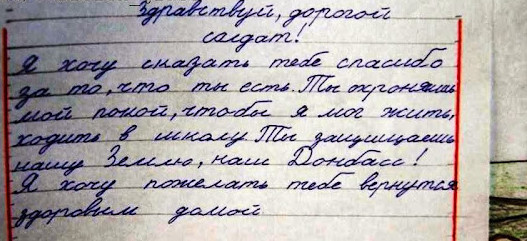 Здравствуй, дорогой
солдат!
Я хочу сказать тебе спасибо
за то, что ты есть. Ты охроняешь
мой покой, чтобы я мог жить,
ходить в школу. Ты защищаешь
нашу Землю, наш Донбасс!
Я хочу пожелать тебе вернутся
здоровым домой